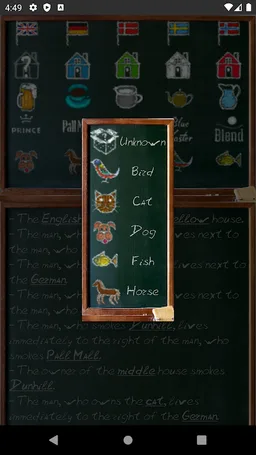 4:49
PRINCE
Pall M
Blue
Master
Blend
Unknown
Bird
Cat
Dog
Fish
Horse
- The English
ellow house.
- The man, wh
ves next to
the man, who
- The man, wh
lives next to
the German.
- The man, wh
ves next to
the man, who
- The man, who smokes Dunhill, lives
immediately to the right of the man, who
smokes Pall Mall.
- The owner of the middle house smokes
Dunhill.
- The man, who owns the cat, lives
immediately to the right of the German.